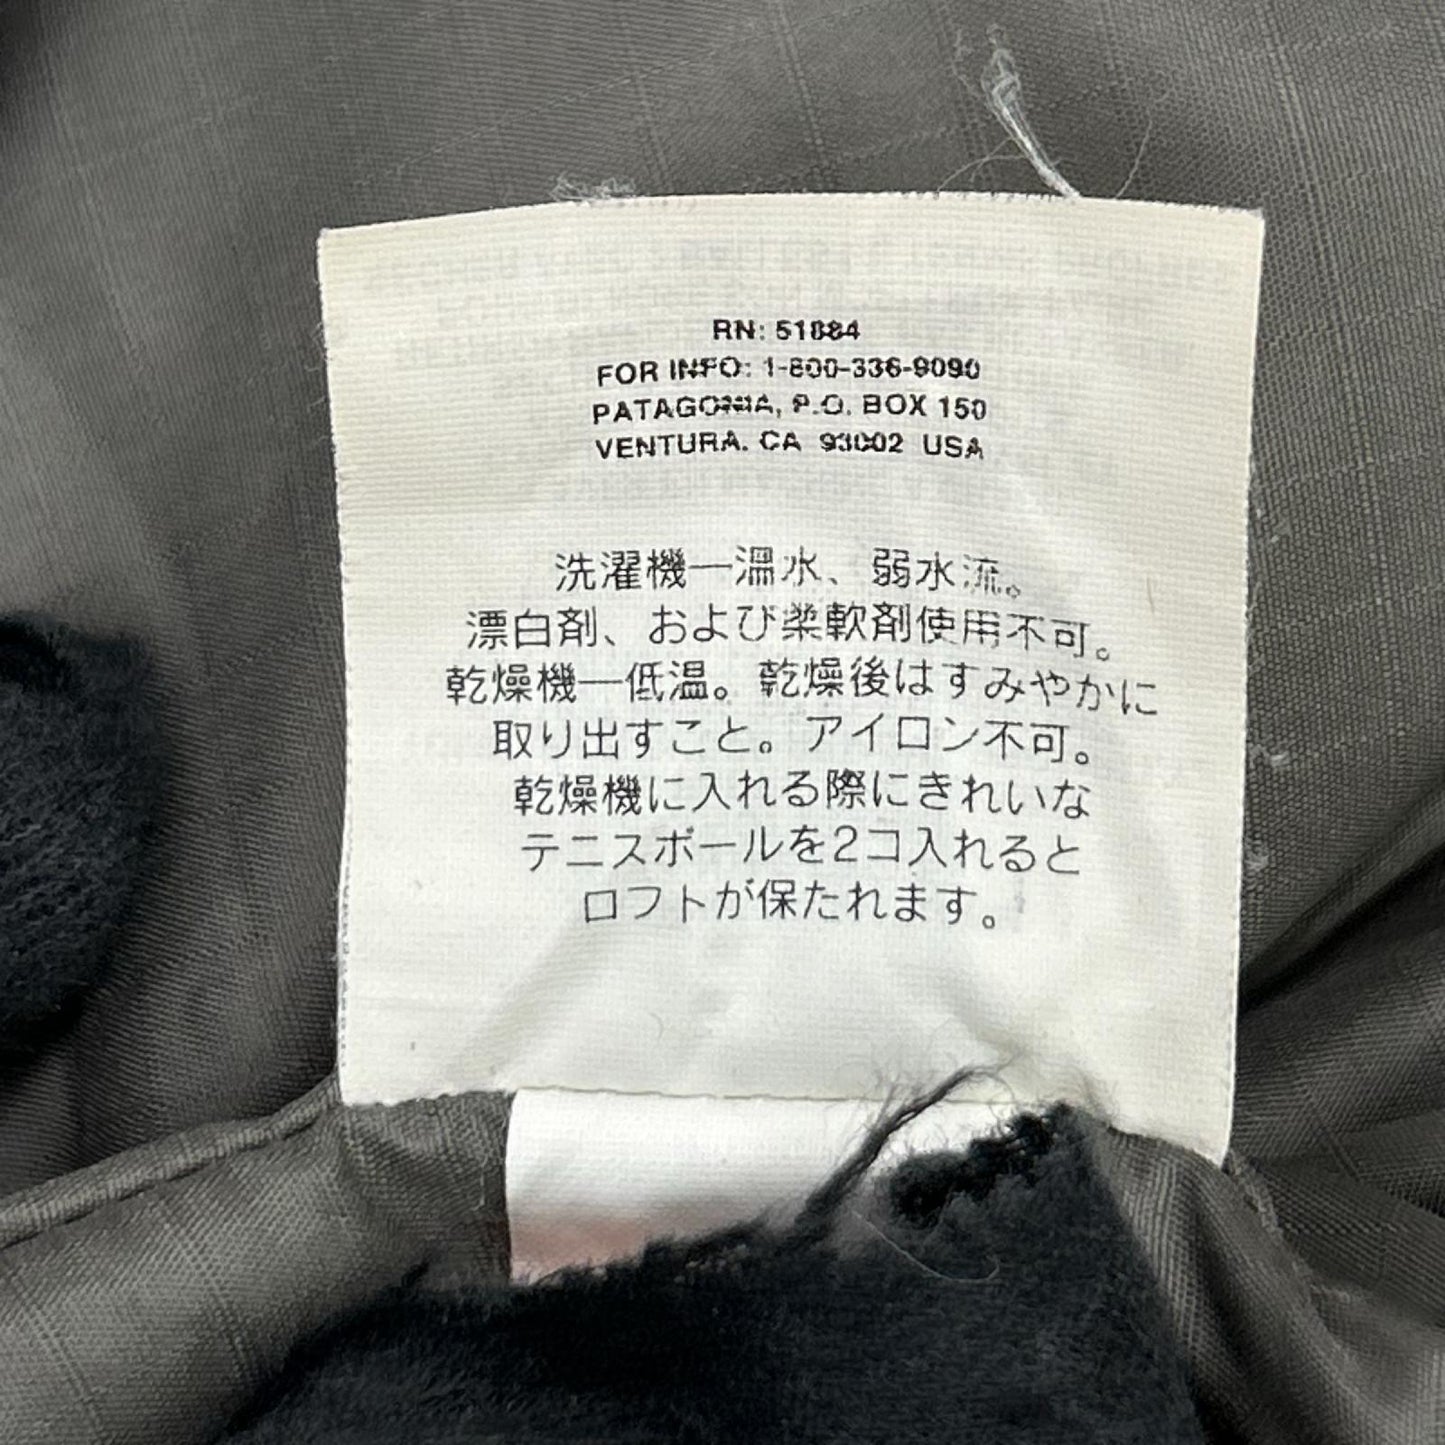 RN: 51884
FOR INFO: 1-800-336-9090
PATAGONIA, P.O. BOX 150
VENTURA. CA 93002 USA
洗濯機—温水、弱水流。
漂白剤、および柔軟剤使用不可。
乾燥機—低温。乾燥後はすみやかに
取り出すこと。アイロン不可。
乾燥機に入れる際にきれいな
テニスボールを2コ入れると
ロフトが保たれます。